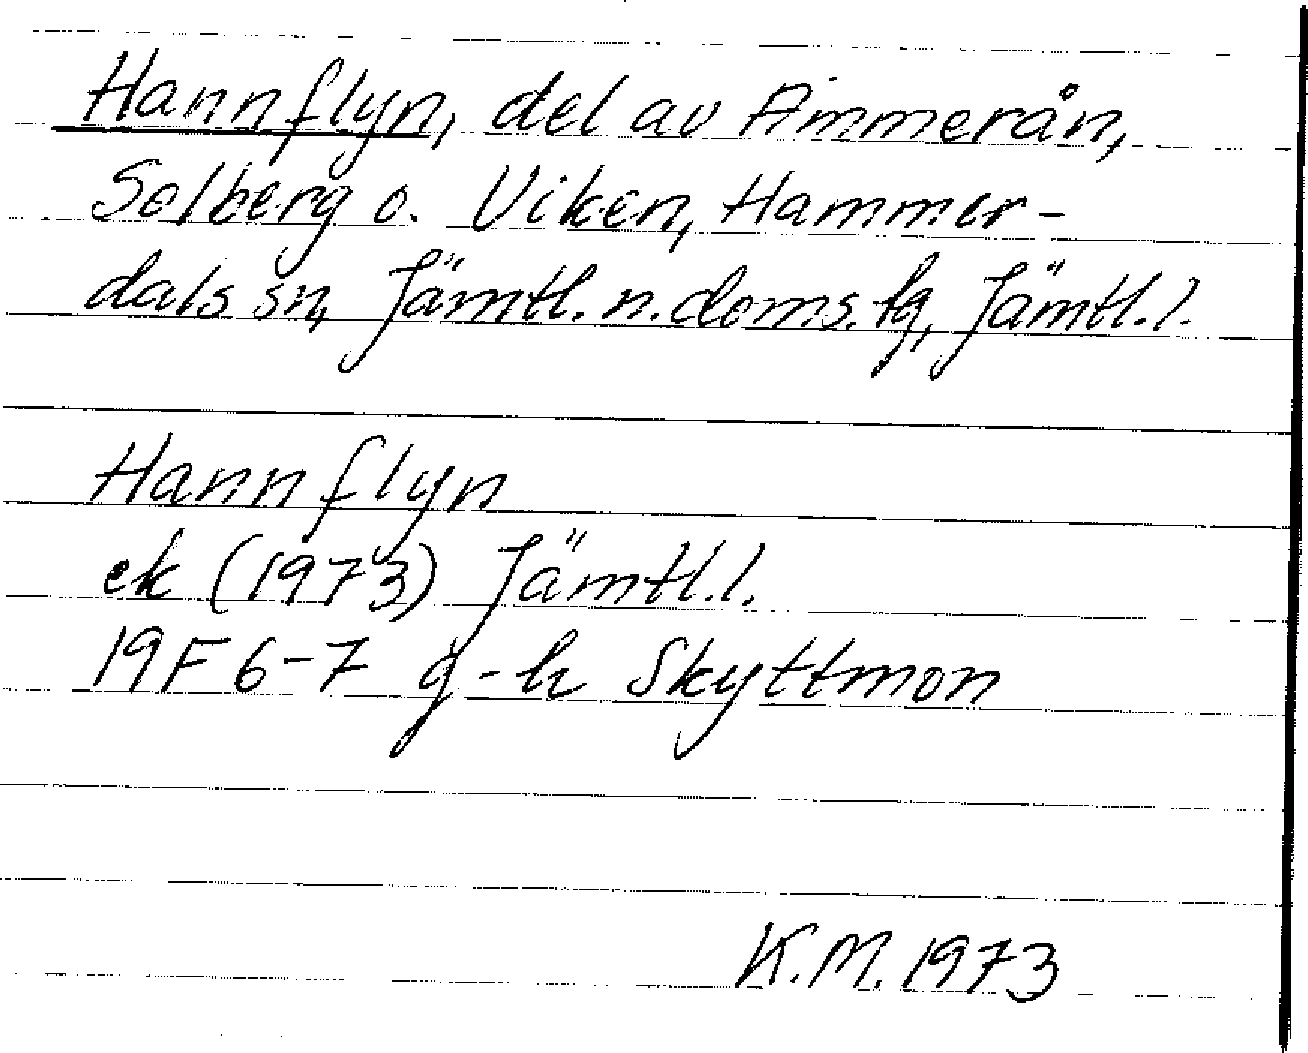 Hannflyn, del av Ammerån,
Solberg o. Viken, Hammer-
dals sn, Jämtl. n. doms. fg, Jämtl. l.
Hannflyn
ek (1973) Jämtl. l.
19F 6-7 g-h Skyttmon
K.M. 1973